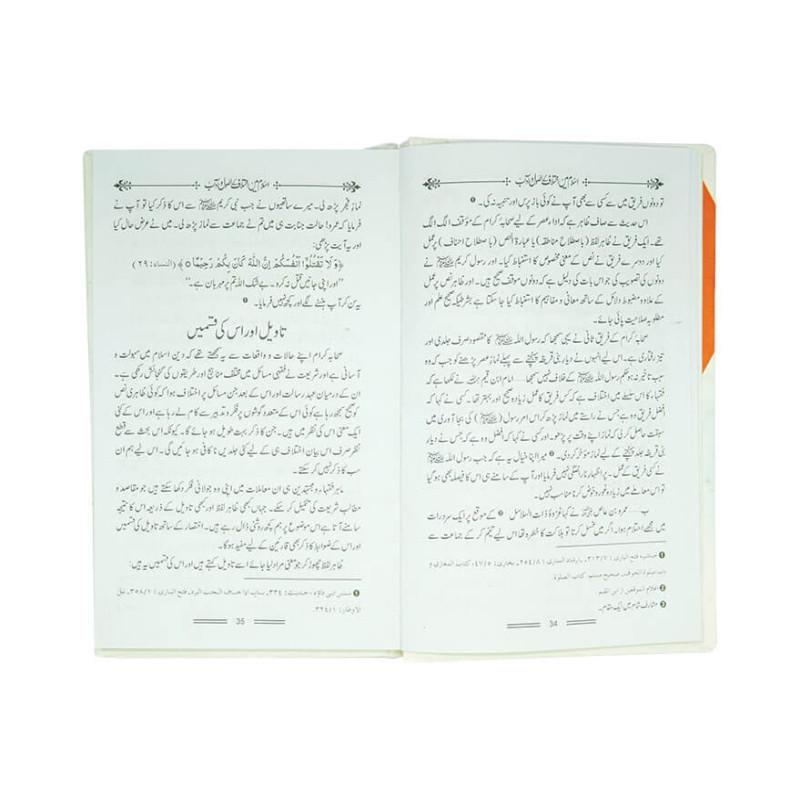 اسلام میں اختلاف کے اصول و آداب
تو دونوں فریق میں سے کسی سے بھی آپ نے کوئی باز پرس اور تنبیہ نہ کی۔ ❶
اس حدیث سے صاف ظاہر ہے کہ اداءِ عصر کے لیے صحابہ کرام کے مؤقف الگ الگ
تھے۔ ایک فریق نے ظاہر لفظ (با صطلاح مناطقہ) یا عبارۃ النص (با صطلاح احناف) پر عمل
کیا اور دوسرے فریق نے نص کے معنی مخصوص کا استنباط کیا۔ اور رسول کریم ﷺ نے
دونوں کی تصویب کی جو اس بات کی دلیل ہے کہ دونوں موقف صحیح ہیں۔ اور ظاہر نص پر عمل
کے علاوہ مضبوط دلائل کے ساتھ معانی و مفاہیم کا استنباط کیا جا سکتا ہے بشرطیکہ صحیح علم اور
مطلوبہ صلاحیت پائی جائے۔
صحابہ کرام کے فریق ثانی نے یہی سمجھا کہ رسول اللہ ﷺ کا مقصود صرف جلدی اور
تیز رفتاری ہے۔ اس لیے انہوں نے دیار بنی قریظہ پہنچنے سے پہلے نماز عصر پڑھنے کو جب کہ وہ
سبب تاخیر نہ ہو حکم رسول اللہ ﷺ کے خلاف نہیں سمجھا۔ امام ابن قیم نے لکھا ہے کہ
فقہاء کا اس سلسلے میں اختلاف ہے کہ کس فریق کا عمل زیادہ صحیح اور بہتر تھا۔ کسی نے کہا کہ
افضل فریق وہ ہے جس نے راستے میں نماز پڑھ کر اس امر رسول (ﷺ) کی بجا آوری میں
سبقت حاصل کر لی کہ نماز اپنے وقت پر پڑھو۔ اور کسی نے کہا کہ افضل وہ ہے کہ جس نے دیار
بنی قریظہ جلد پہنچنے کے لیے نماز مؤخر کر دی۔ ❷ میرا اپنا خیال یہ ہے کہ جب رسول اللہ ﷺ
نے کسی فریق کے عمل پر اظہار ناراضگی نہیں فرمایا اور آپ کے سامنے ہی اس کا فیصلہ بھی ہو گیا
تو اس معاملے میں زیادہ غور و خوض کرنا مناسب نہیں۔
ب۔ عمرو بن عاص نے کہا غزوۂ ذات السلاسل ❸ کے موقع پر ایک سرد رات
میں مجھے احتلام ہوا۔ اگر میں غسل کرتا تو ہلاکت کا خطرہ تھا اس لیے تیمم کر کے جماعت سے
❶ فتح الباری: ۳۰۳/۷۔ بخاری: ۴۷/۵، کتاب المغازی و
صحیح مسلم، کتاب الصلوٰۃ
❷ اعلام الموقعین (ابن القیم)
❸ مشارف شام میں ایک مقام۔
34
اسلام میں اختلاف کے اصول و آداب
نماز فجر پڑھ لی۔ میرے ساتھیوں نے جب نبی کریم ﷺ سے اس کا ذکر کیا تو آپ نے
فرمایا کہ عمرو! حالت جنابت ہی میں تم نے جماعت سے نماز پڑھ لی۔ میں نے عرض حال کیا
اور یہ آیت پڑھی:
﴿وَلَا تَقْتُلُوْٓا اَنْفُسَكُمْ اِنَّ اللّٰهَ كَانَ بِكُمْ رَحِيْمًا﴾ (النساء: ۲۹)
"اور اپنی جانیں قتل نہ کرو۔ بے شک اللہ تم پر مہربان ہے۔"
یہ سن کر آپ ہنسنے لگے اور کچھ نہیں فرمایا۔ ❶
تاویل اور اس کی قسمیں
صحابہ کرام اپنے حالات و واقعات سے یہ سمجھتے تھے کہ دین اسلام میں سہولت و
آسانی ہے اور شریعت نے فقہی مسائل میں مختلف مناہج اور طریقوں کی گنجائش رکھی ہے۔
ان کے درمیان عہد رسالت اور اس کے بعد جن مسائل پر اختلاف ہوا کہ کوئی ظاہری نص
کو صحیح سمجھ رہا ہے کوئی اس کے متعدد گوشوں پر فکر و تدبر سے کام لے رہا ہے اور اس کے کئی
ایک معنی اس کی نظر میں ہیں۔ جن کا ذکر بہت طویل ہو جائے گا۔ کیونکہ اس بحث سے قطع
نظر صرف اس بیان اختلاف ہی کے لیے کئی جلدیں ناکافی ہو جائیں گی۔ اس لیے ہم ان
سب کا ذکر نہیں کر سکتے۔
ماہر فقہاء و مجتہدین ہی ان معاملات میں اپنی وہ جولانی فکر دکھا سکتے ہیں جو مقاصد و
مطالب شریعت کی تکمیل کر سکے۔ جہاں کبھی ظاہر لفظ اور کبھی تاویل سے اس کا نتیجہ
سامنے آتا ہے اس موضوع پر ہم کچھ روشنی ڈال رہے ہیں۔ اختصار کے ساتھ تاویل کی قسمیں
اور اس کے ضوابط کا ذکر بھی قارئین کے لیے مفید ہو گا۔
ظاہر لفظ چھوڑ کر جو معنی مراد لیا جائے اسے تاویل کہتے ہیں اور اس کی قسمیں یہ ہیں:
❶ سنن ابی داؤد، حدیث: ۳۳۴، باب اذا خاف الجنب البرد۔ فتح الباری: ۳۵۸/۱، نیل
الاوطار: ۳۲۴/۱۔
35